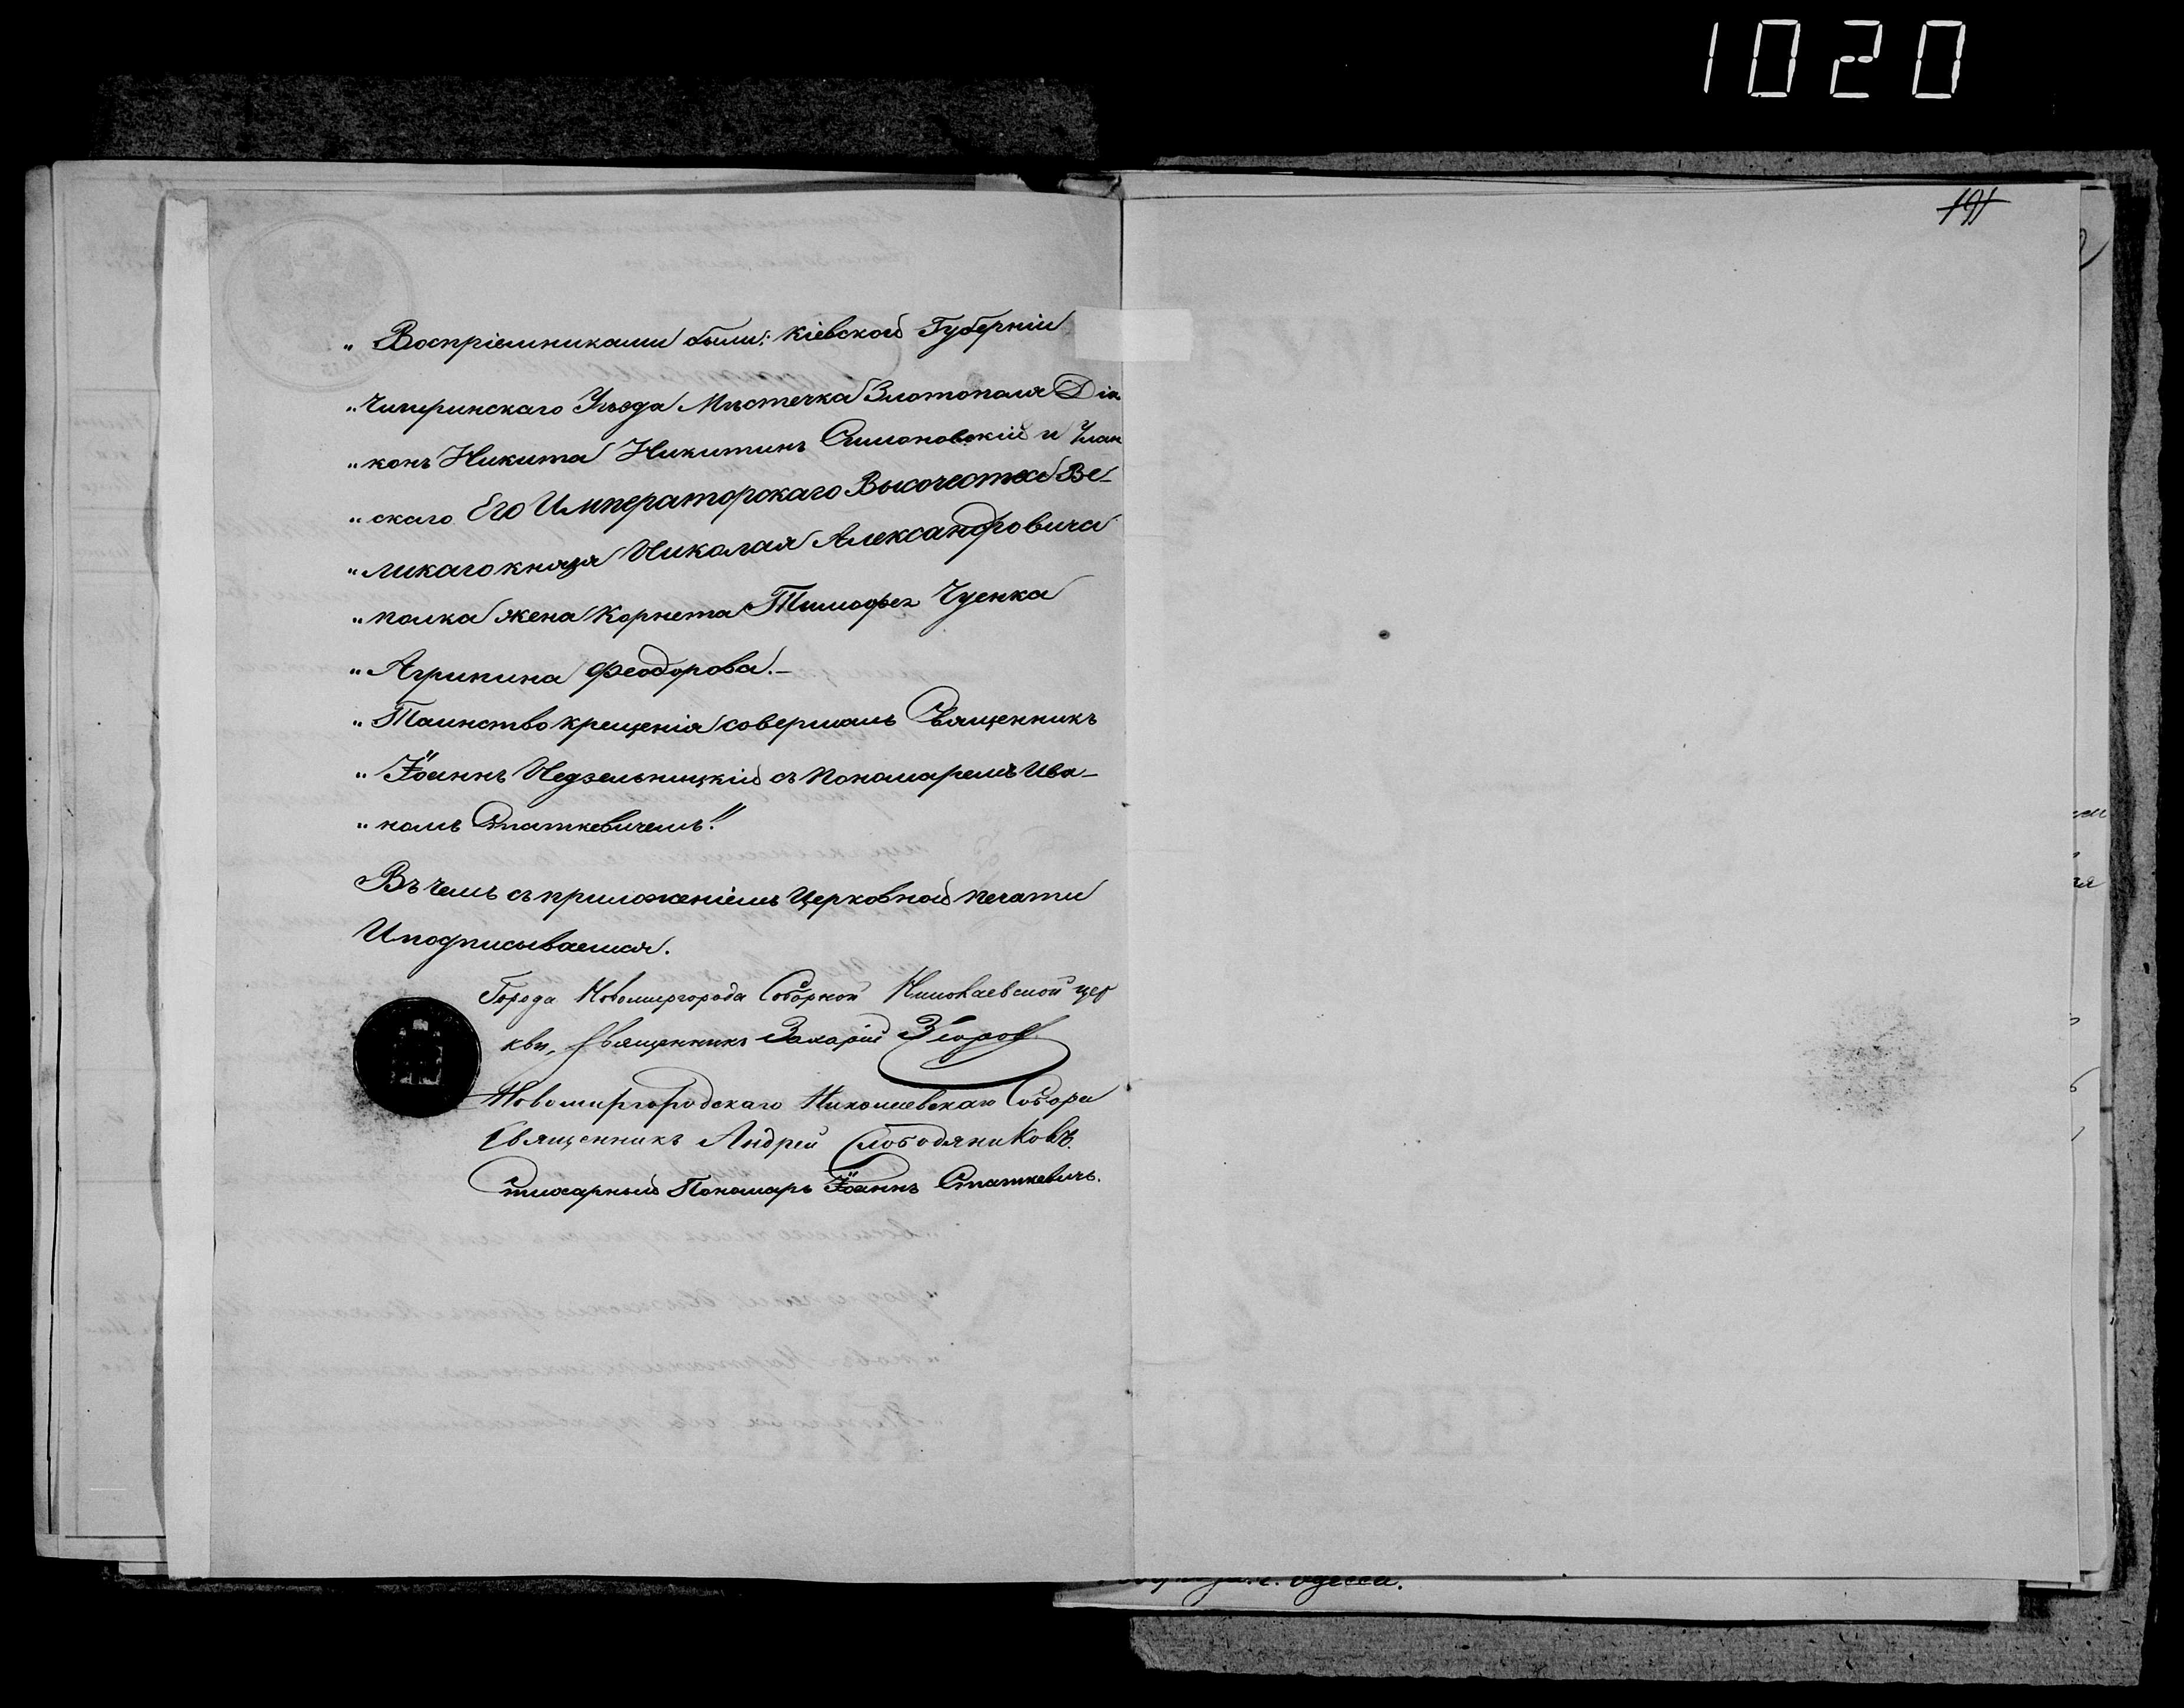 1020
191
„ Воспріемниками были: Кіевской Губерніи
„ Чигиринскаго Уѣзда Мѣстечка Златополя Діа
„ конъ Никита Никитинъ Симоновскій и Улан
„ скаго Его Императорскаго Высочества Ве-
„ ликаго князя Николая Александровича
„ полка жена Корнета Тимофея Чуенка
„ Агрипина Феодорова.-
„ Таинство крещенія совершалъ Священникъ
„ Іоаннъ Недзельницкій съ пономаремъ Ива-
„ номъ Статкевичемъ."
Въ чемъ съ приложеніемъ Церковной печати
И подписываемся.
Города Новомиргорода Соборной Николаевской цер
кви, Священникъ Захарій
Новомиргородскаго Николаевскаго Собора
Священникъ Андрей Слободяниковъ.
Стихарный Пономарь Іоаннъ Статкевичъ.
Одесса.